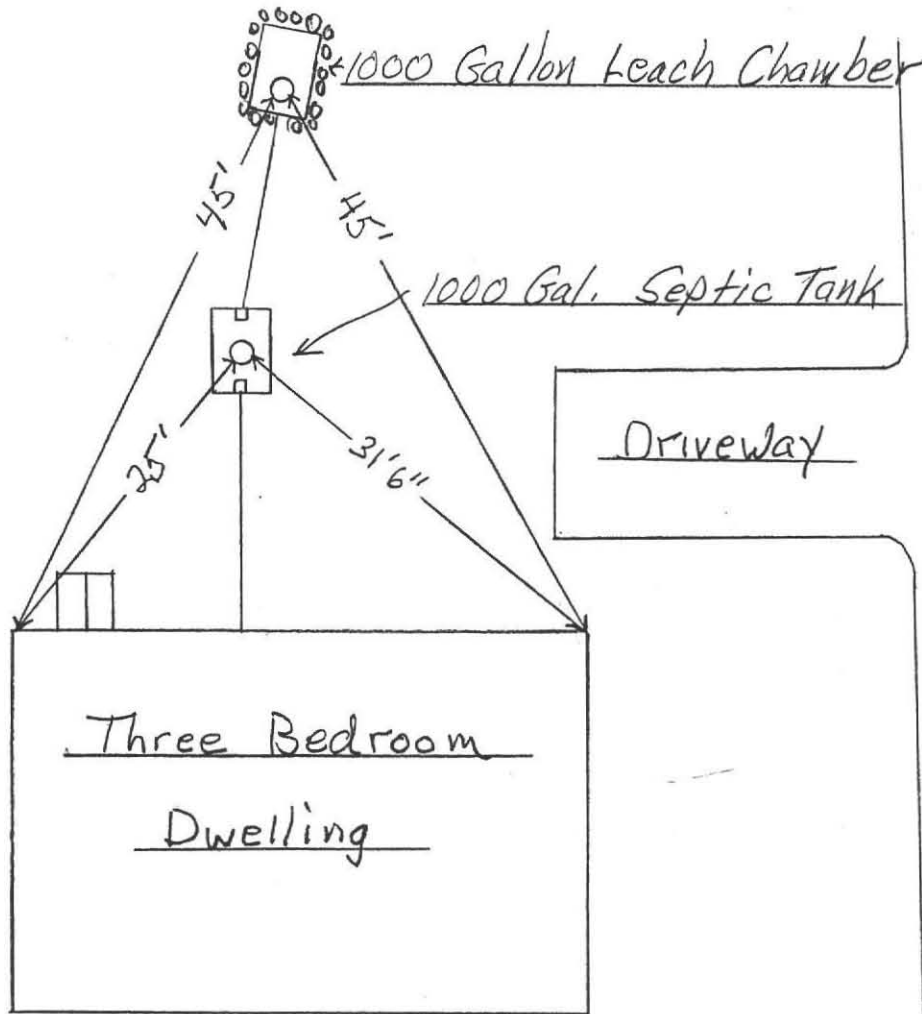 1000 Gallon Leach Chamber
45'
45'
1000 Gal. Septic Tank
25'
31'6"
Driveway
Three Bedroom
Dwelling